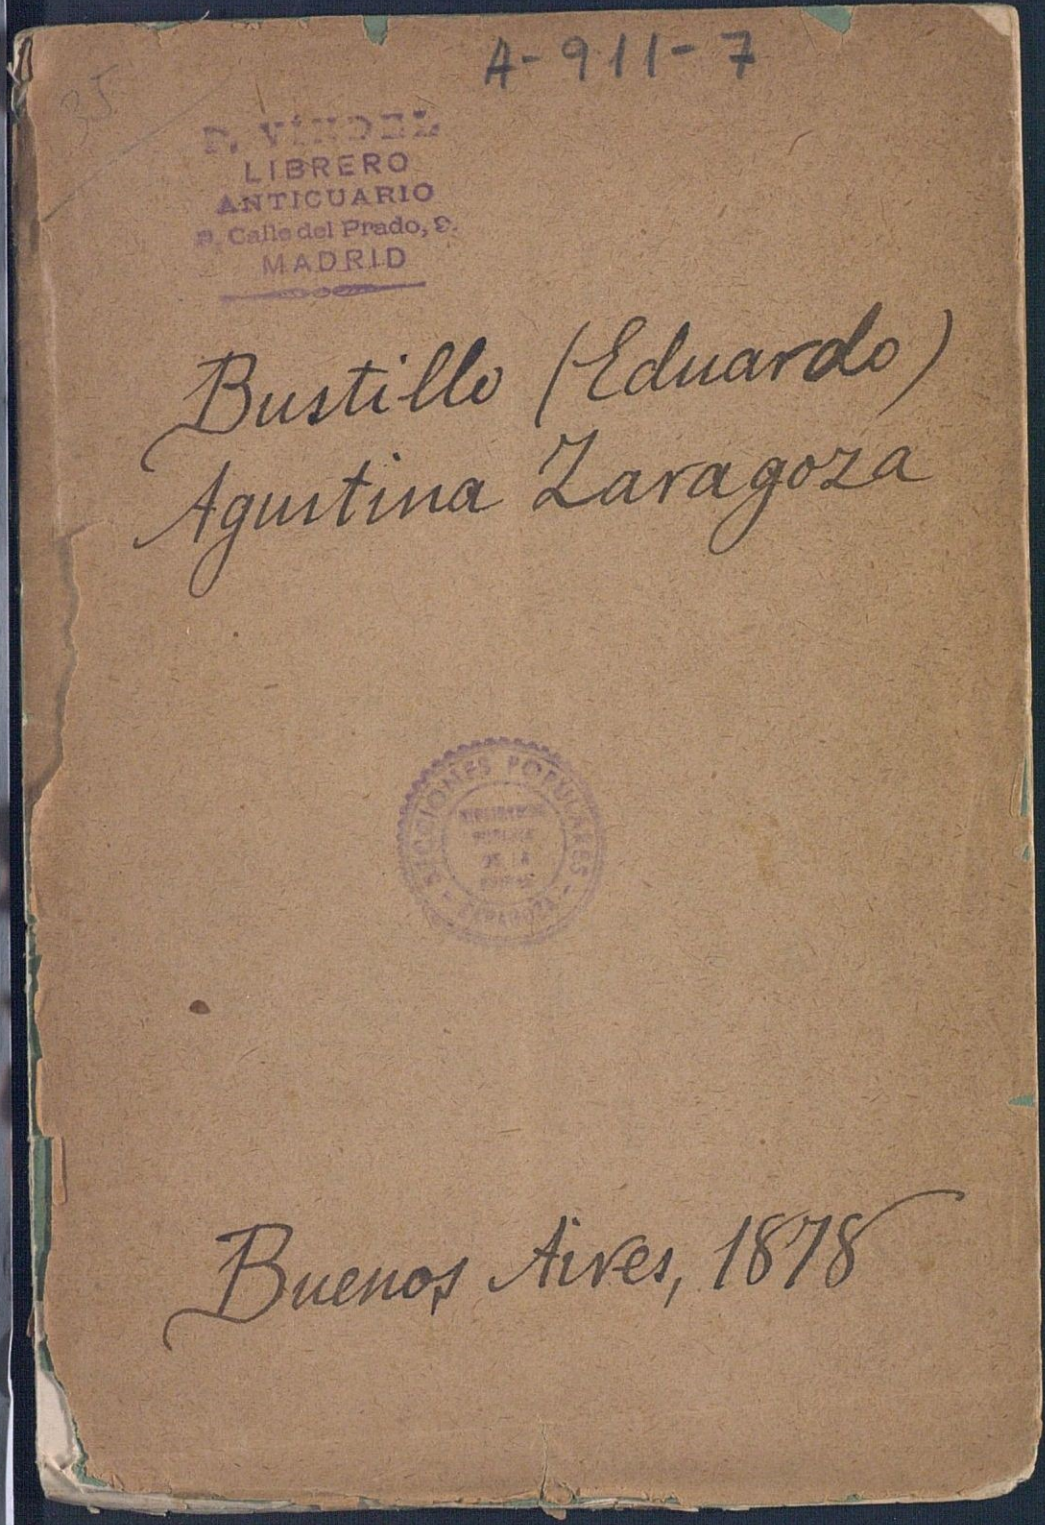 A-911-7
35
P. VINDEL
LIBRERO
ANTICUARIO
9, Calle del Prado, 9.
MADRID
Bustillo (Eduardo)
Agustina Zaragoza
SECCIONES POPULARES
DE LA
ZARAGOZA
Buenos Aires, 1878